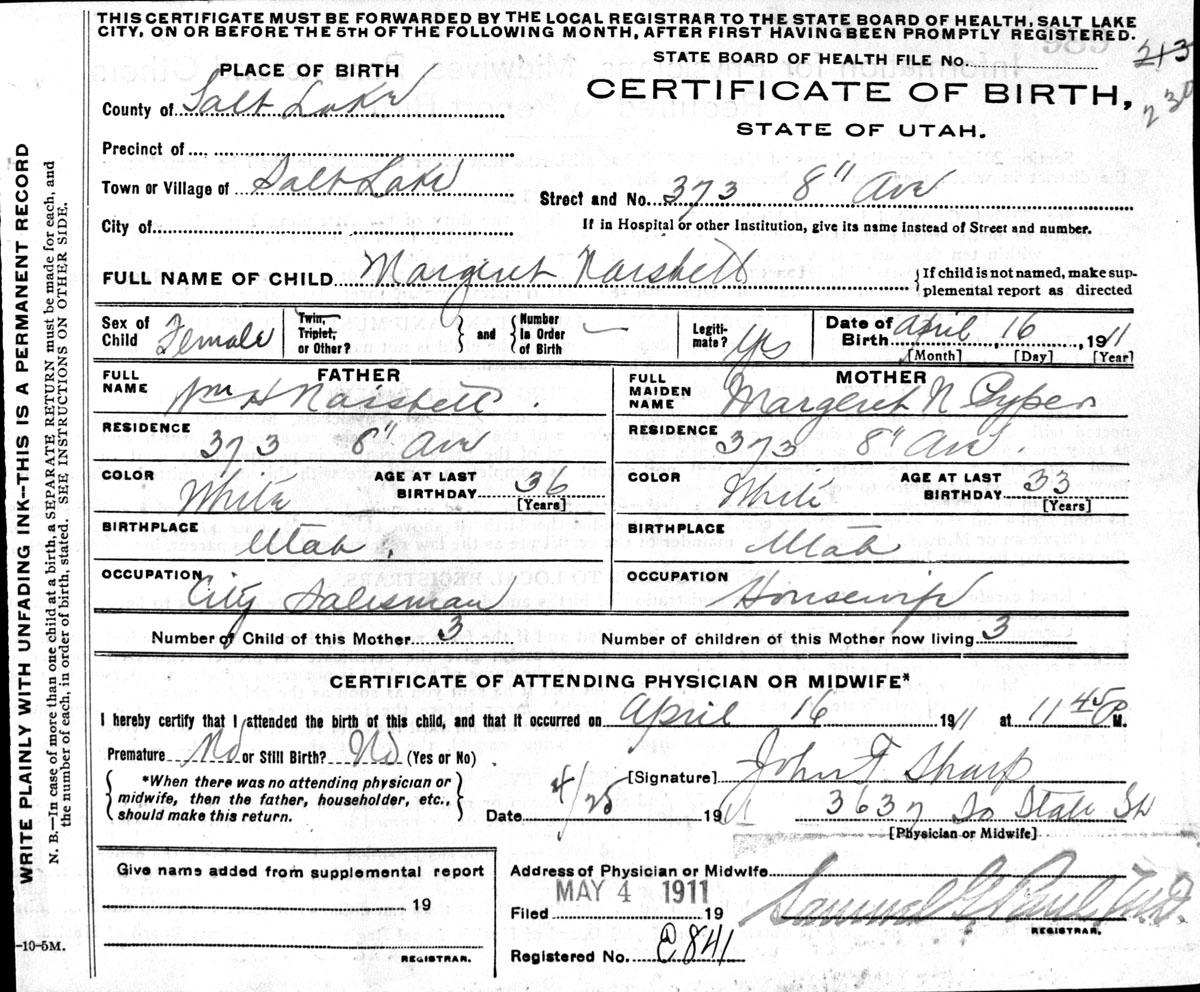 THIS CERTIFICATE MUST BE FORWARDED BY THE LOCAL REGISTRAR TO THE STATE BOARD OF HEALTH, SALT LAKE
CITY, ON OR BEFORE THE 5TH OF THE FOLLOWING MONTH, AFTER FIRST HAVING BEEN PROMPTLY REGISTERED.
STATE BOARD OF HEALTH FILE No. 213
230
PLACE OF BIRTH
CERTIFICATE OF BIRTH,
STATE OF UTAH.
County of Salt Lake
Precinct of
Town or Village of Salt Lake
Street and No. 373 8" Ave
City of
If in Hospital or other Institution, give its name instead of Street and number.
FULL NAME OF CHILD Margaret Naisbett
If child is not named, make sup-
plemental report as directed
Sex of Child Female
Twin, Triplet, or Other?
and
Number in Order of Birth —
Legiti-mate? Yes
Date of Birth April 16, 1911
[Month] [Day] [Year]
FATHER
FULL NAME Wm H Naisbett
RESIDENCE 373 8" Ave
COLOR White
AGE AT LAST BIRTHDAY 36
[Years]
BIRTHPLACE Utah.
OCCUPATION City Salesman
MOTHER
FULL MAIDEN NAME Margeret N Pyper
RESIDENCE 373 8" Ave.
COLOR White
AGE AT LAST BIRTHDAY 33
[Years]
BIRTHPLACE Utah
OCCUPATION Housewife
Number of Child of this Mother 3
Number of children of this Mother now living 3
CERTIFICATE OF ATTENDING PHYSICIAN OR MIDWIFE*
I hereby certify that I attended the birth of this child, and that it occurred on April 16 1911 at 11 45 P M.
Premature No or Still Birth? No (Yes or No)
*When there was no attending physician or
midwife, then the father, householder, etc.,
should make this return.
[Signature] John F Sharp
Date 4/25 1911
3637 So State St
[Physician or Midwife]
Give name added from supplemental report
19
REGISTRAR.
Address of Physician or Midwife
Filed MAY 4 1911 19
Samuel G Paul
REGISTRAR.
Registered No. E.841
WRITE PLAINLY WITH UNFADING INK--THIS IS A PERMANENT RECORD
N. B.—In case of more than one child at a birth, a SEPARATE RETURN must be made for each, and
the number of each, in order of birth, stated. SEE INSTRUCTIONS ON OTHER SIDE.
-10-5M.